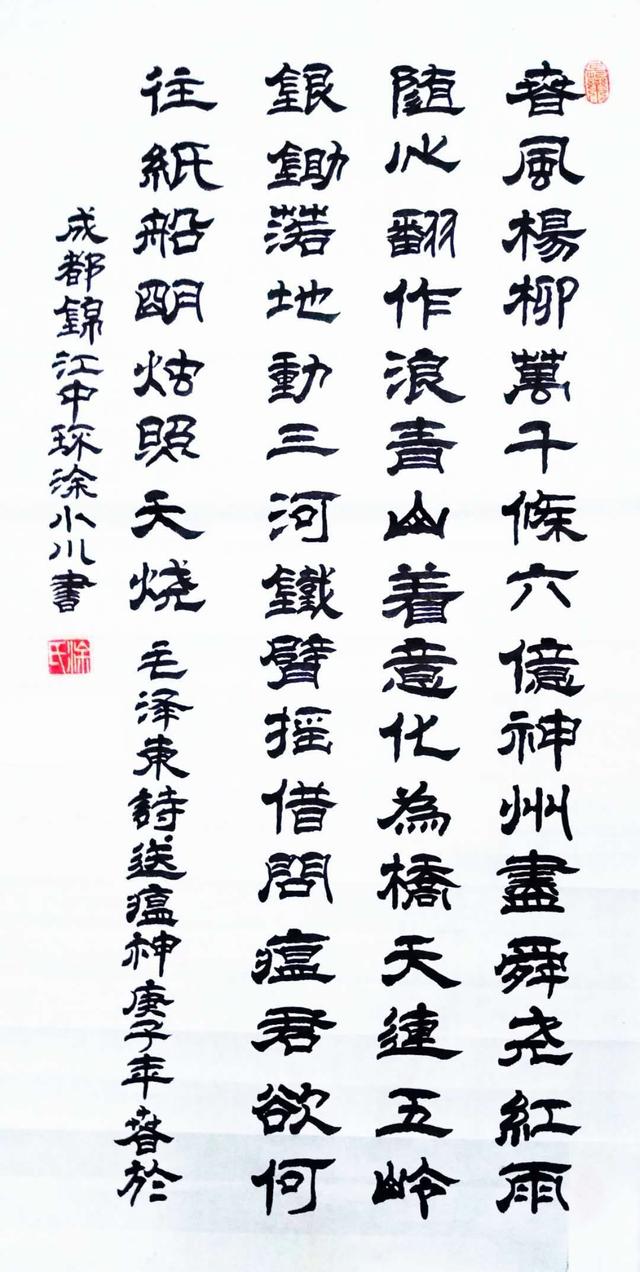 春風楊柳萬千條六億神州盡舜尧紅雨
随心翻作浪青山着意化為橋天連五岭
銀鋤落地動三河鐵臂摇借問瘟君欲何
往紙船明烛照天烧 毛泽東詩送瘟神庚子年春於
成都錦江中琛涂小川書
涂氏